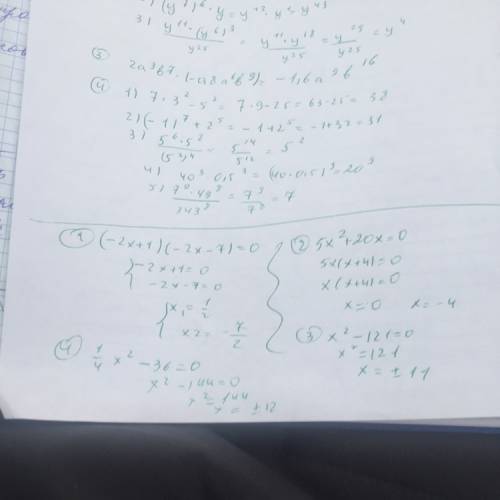 (y⁷)⁶ · y = y⁴² · y = y⁴³
3) y¹¹·(y⁶)³/y²⁵ = y¹¹·y¹⁸/y²⁵ = y²⁹/y²⁵ = y⁴
③
④
1) 7·3² - 5² = 7·9-25 = 63-25 = 38
2) (-1)⁷ + 2⁵ = -1+2⁵ = -1+32 = 31
3) 5⁶·5²/(5³)⁴ = 5¹⁴/5¹² = 5²
4) 40⁹·0,5⁹ = (40·0,5)⁹ = 20⁹
= 7⁹/7⁸ = 7
① (-2x+1)(-2x-7)=0
-2x+1=0
-2x-7=0
x₁ = 1/2
x2 = -7/2
② 5x²+20x=0
5x(x+4)=0
x(x+4)=0
x=0 x=-4
③ x²-121=0
x²=121
x = ±11
④ 1/4 x² - 36 = 0
x² - 144 = 0
x² = 144
x = ±12